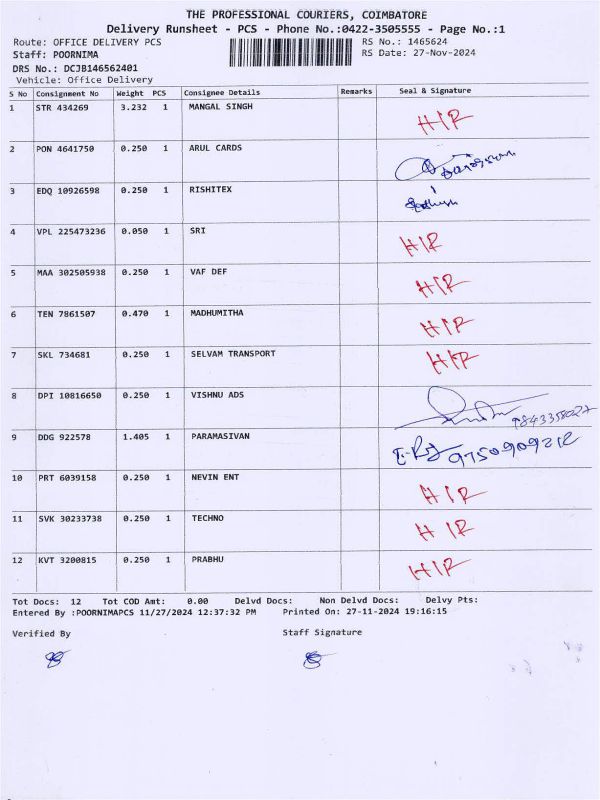 THE PROFESSIONAL COURIERS, COIMBATORE
Delivery Runsheet - PCS - Phone No.:0422-3505555 - Page No.:1
Route: OFFICE DELIVERY PCS RS No.: 1465624
Staff: POORNIMA RS Date: 27-Nov-2024
DRS No.: DCJB146562401
Vehicle: Office Delivery
S No Consignment No Weight PCS Consignee Details Remarks Seal & Signature
1 STR 434269 3.232 1 MANGAL SINGH H/R
2 PON 4641750 0.250 1 ARUL CARDS
3 EDQ 10926598 0.250 1 RISHITEX
4 VPL 225473236 0.050 1 SRI H/R
5 MAA 302505938 0.250 1 VAF DEF H/R
6 TEN 7861507 0.470 1 MADHUMITHA H/R
7 SKL 734681 0.250 1 SELVAM TRANSPORT H/R
8 DPI 10816650 0.250 1 VISHNU ADS
9 DDG 922578 1.405 1 PARAMASIVAN
10 PRT 6039158 0.250 1 NEVIN ENT H/R
11 SVK 30233738 0.250 1 TECHNO H/R
12 KVT 3200815 0.250 1 PRABHU H/R
Tot Docs: 12 Tot COD Amt: 0.00 Delvd Docs: Non Delvd Docs: Delvy Pts:
Entered By :POORNIMAPCS 11/27/2024 12:37:32 PM Printed On: 27-11-2024 19:16:15
Verified By Staff Signature